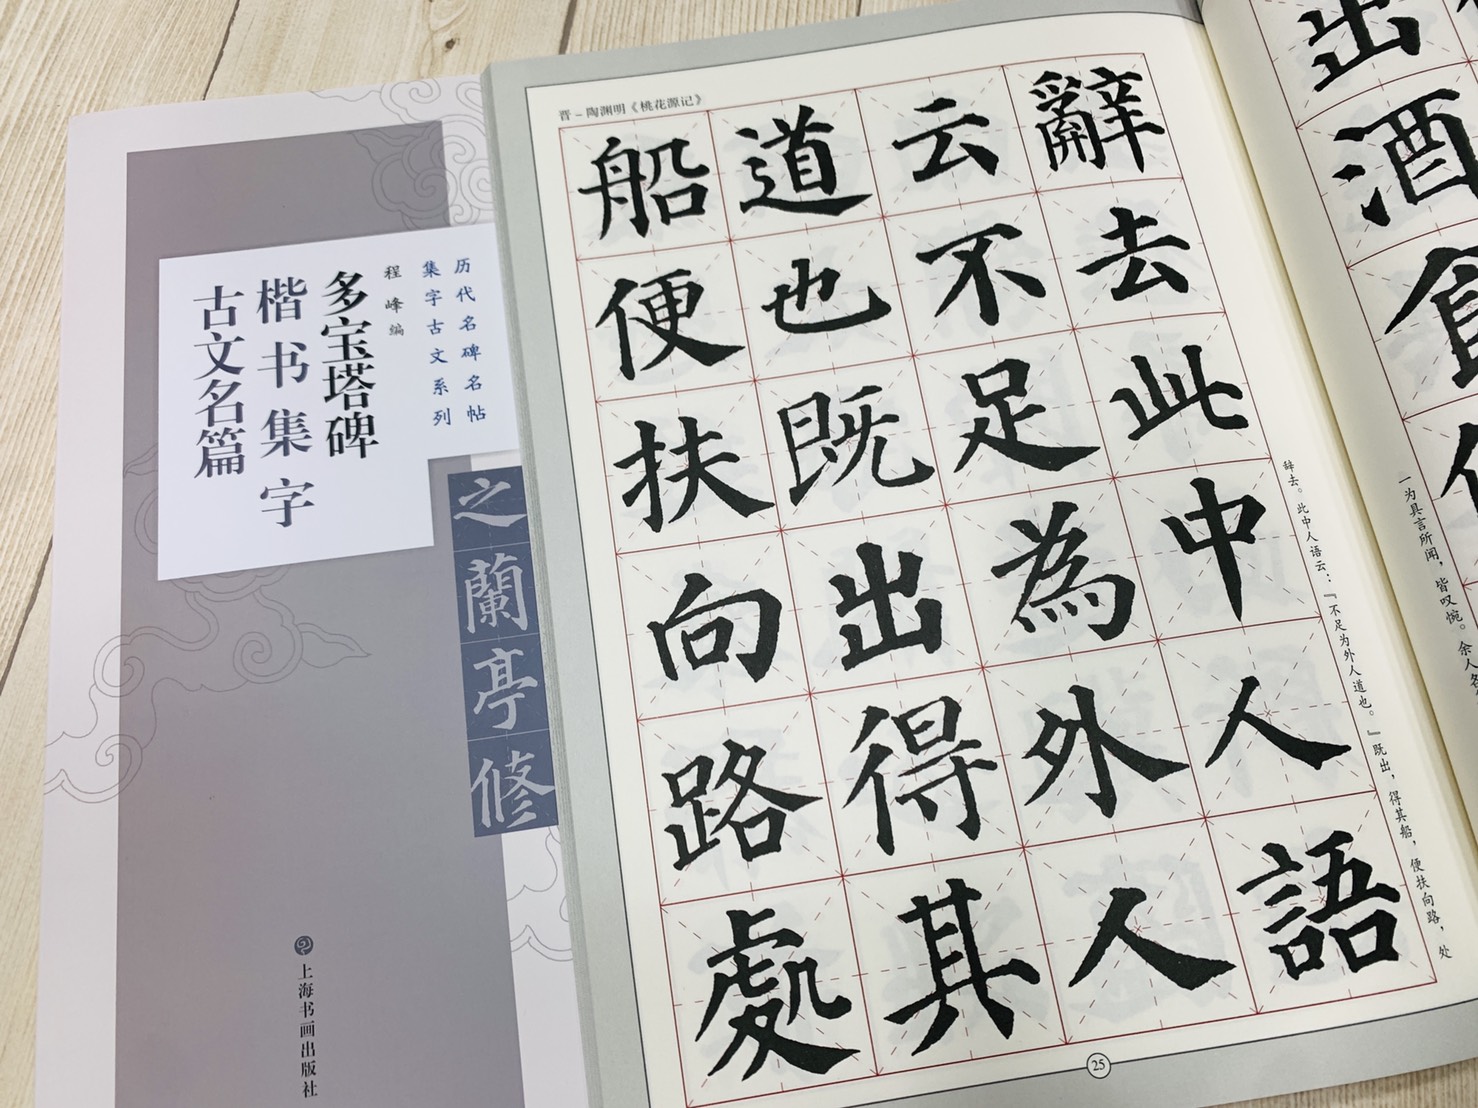 历代名碑名帖
集字古文系列
程峰 编
多宝塔碑
楷书集字
古文名篇
之蘭亭修
上海书画出版社
晋－陶渊明《桃花源记》
辭去此中人語
云不足為外人
道也既出得其
船便扶向路處
辞去。此中人语云：『不足为外人道也。』既出，得其船，便扶向路，处
25
出
酒
食
一为具言所闻，皆叹惋。余人各